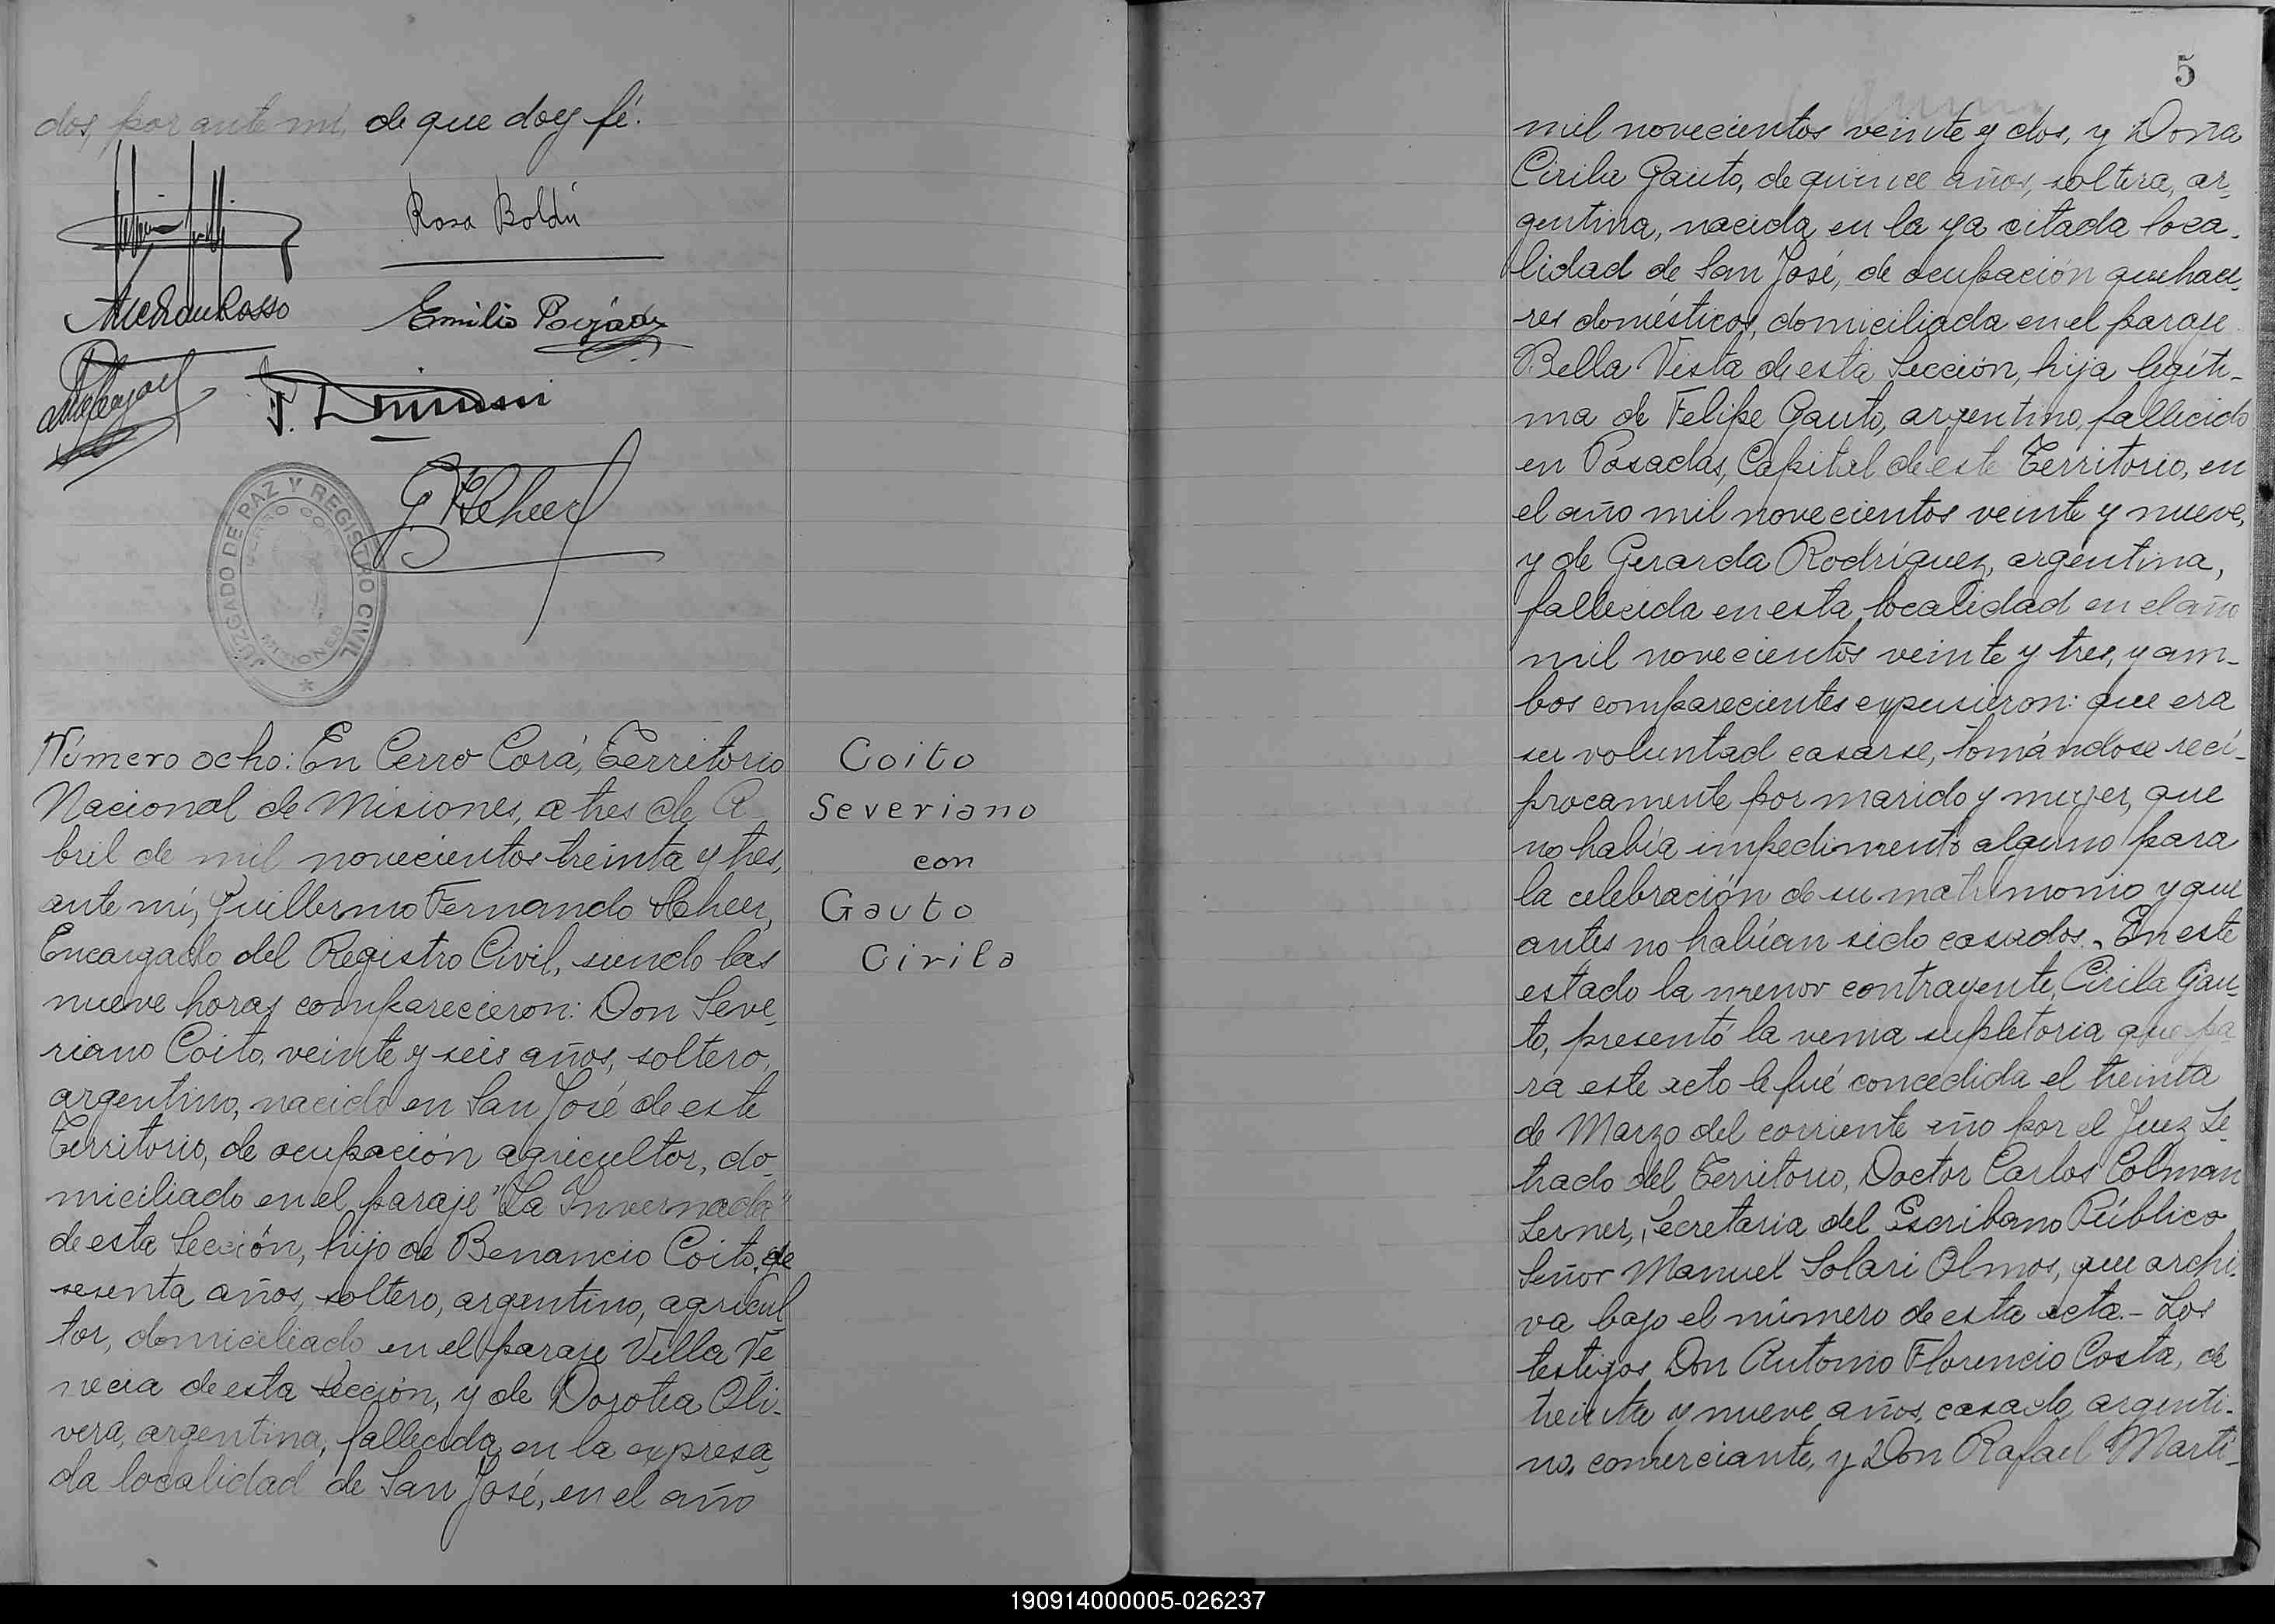 dos, por ante mí, de que doy fé.
Rosa Boldú
Emilio
JUZGADO DE PAZ Y REGISTRO CIVIL
MISIONES
Número ocho: En Cerro Corá, Territorio
Nacional de Misiones, a tres de A
bril de mil novecientos treinta y tres,
ante mí, Guillermo Fernando Scheer,
Encargado del Registro Civil, siendo las
nueve horas comparecieron: Don Seve,
riano Coito, veinte y seis años, soltero,
argentino, nacido en San José de este
Territorio, de ocupación agricultor, do_
miciliado en el paraje "La Invernada"
de esta Sección, hijo de Benancio Coito, de
sesenta años, soltero, argentino, agricul_
tor, domiciliado en el paraje Villa Ve_
necia de esta sección, y de Dorotea Oli-
vera, argentina, fallecida en la expresa_
da localidad de San José, en el año
Coito
Severiano
con
Gauto
Cirila
5
mil novecientos veinte y dos, y Doña
Cirila Gauto, de quince años, soltera, ar_
gentina, nacida en la ya citada loca_
lidad de San José, de ocupación quehace_
res domésticos, domiciliada en el paraje
Bella Vista de esta Sección, hija legíti-
ma de Felipe Gauto, argentino, fallecido
en Posadas, Capital de este Territorio, en
el año mil novecientos veinte y nueve,
y de Gerarda Rodríguez, argentina,
fallecida en esta localidad en el año
mil novecientos veinte y tres, y am-
bos comparecientes expusieron: que era
su voluntad casarse, tomándose recí-
procamente por marido y mujer, que
no había impedimento alguno para
la celebración de su matrimonio y que
antes no habían sido casados. En este
estado la menor contrayente, Cirila Gau_
to, presentó la venia supletoria que pa
ra este acto le fué concedida el treinta
de Marzo del corriente año por el Juez Le_
trado del Territorio, Doctor Carlos Colman
Lerner, Secretaria del Escribano Público
Señor Manuel Solari Olmos, que archi_
va bajo el número de esta acta.- Los
testigos Don Antonio Florencio Costa, de
treinta y nueve años, casado, argenti-
no, comerciante, y Don Rafael Martí-
190914000005-026237